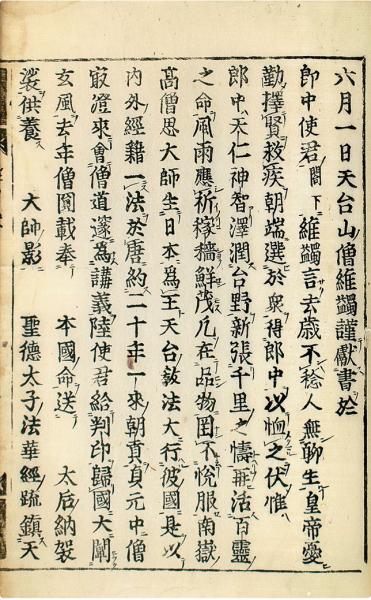 六月一日天台山僧維蠲謹獻書於
郎中使君閣下維蠲言去歲不稔人無聊生皇帝憂
勤擇賢救疾朝端選於衆得郎中以恤之伏惟
郎中天仁神智澤潤台野新張千里之幬再活百靈
之命風雨應祈稼穡鮮茂凡在品物罔不悅服南嶽
高僧思大師生日本爲王天台敎法大行彼國是以
内外經籍一法於唐約二十年一來朝貢貞元中僧
㝡澄來會僧道邃爲講義陸使君給判印歸國大闡
玄風去年僧圓載奉　本國命送　太后納袈
裟供養　大師影　聖德太子法華經疏鎮天